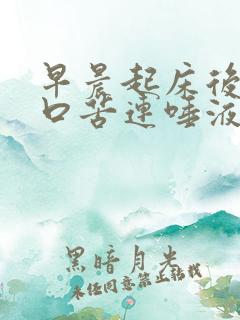 早晨起床後
口苦連唾液
黑暗月光
未经同意禁止转载